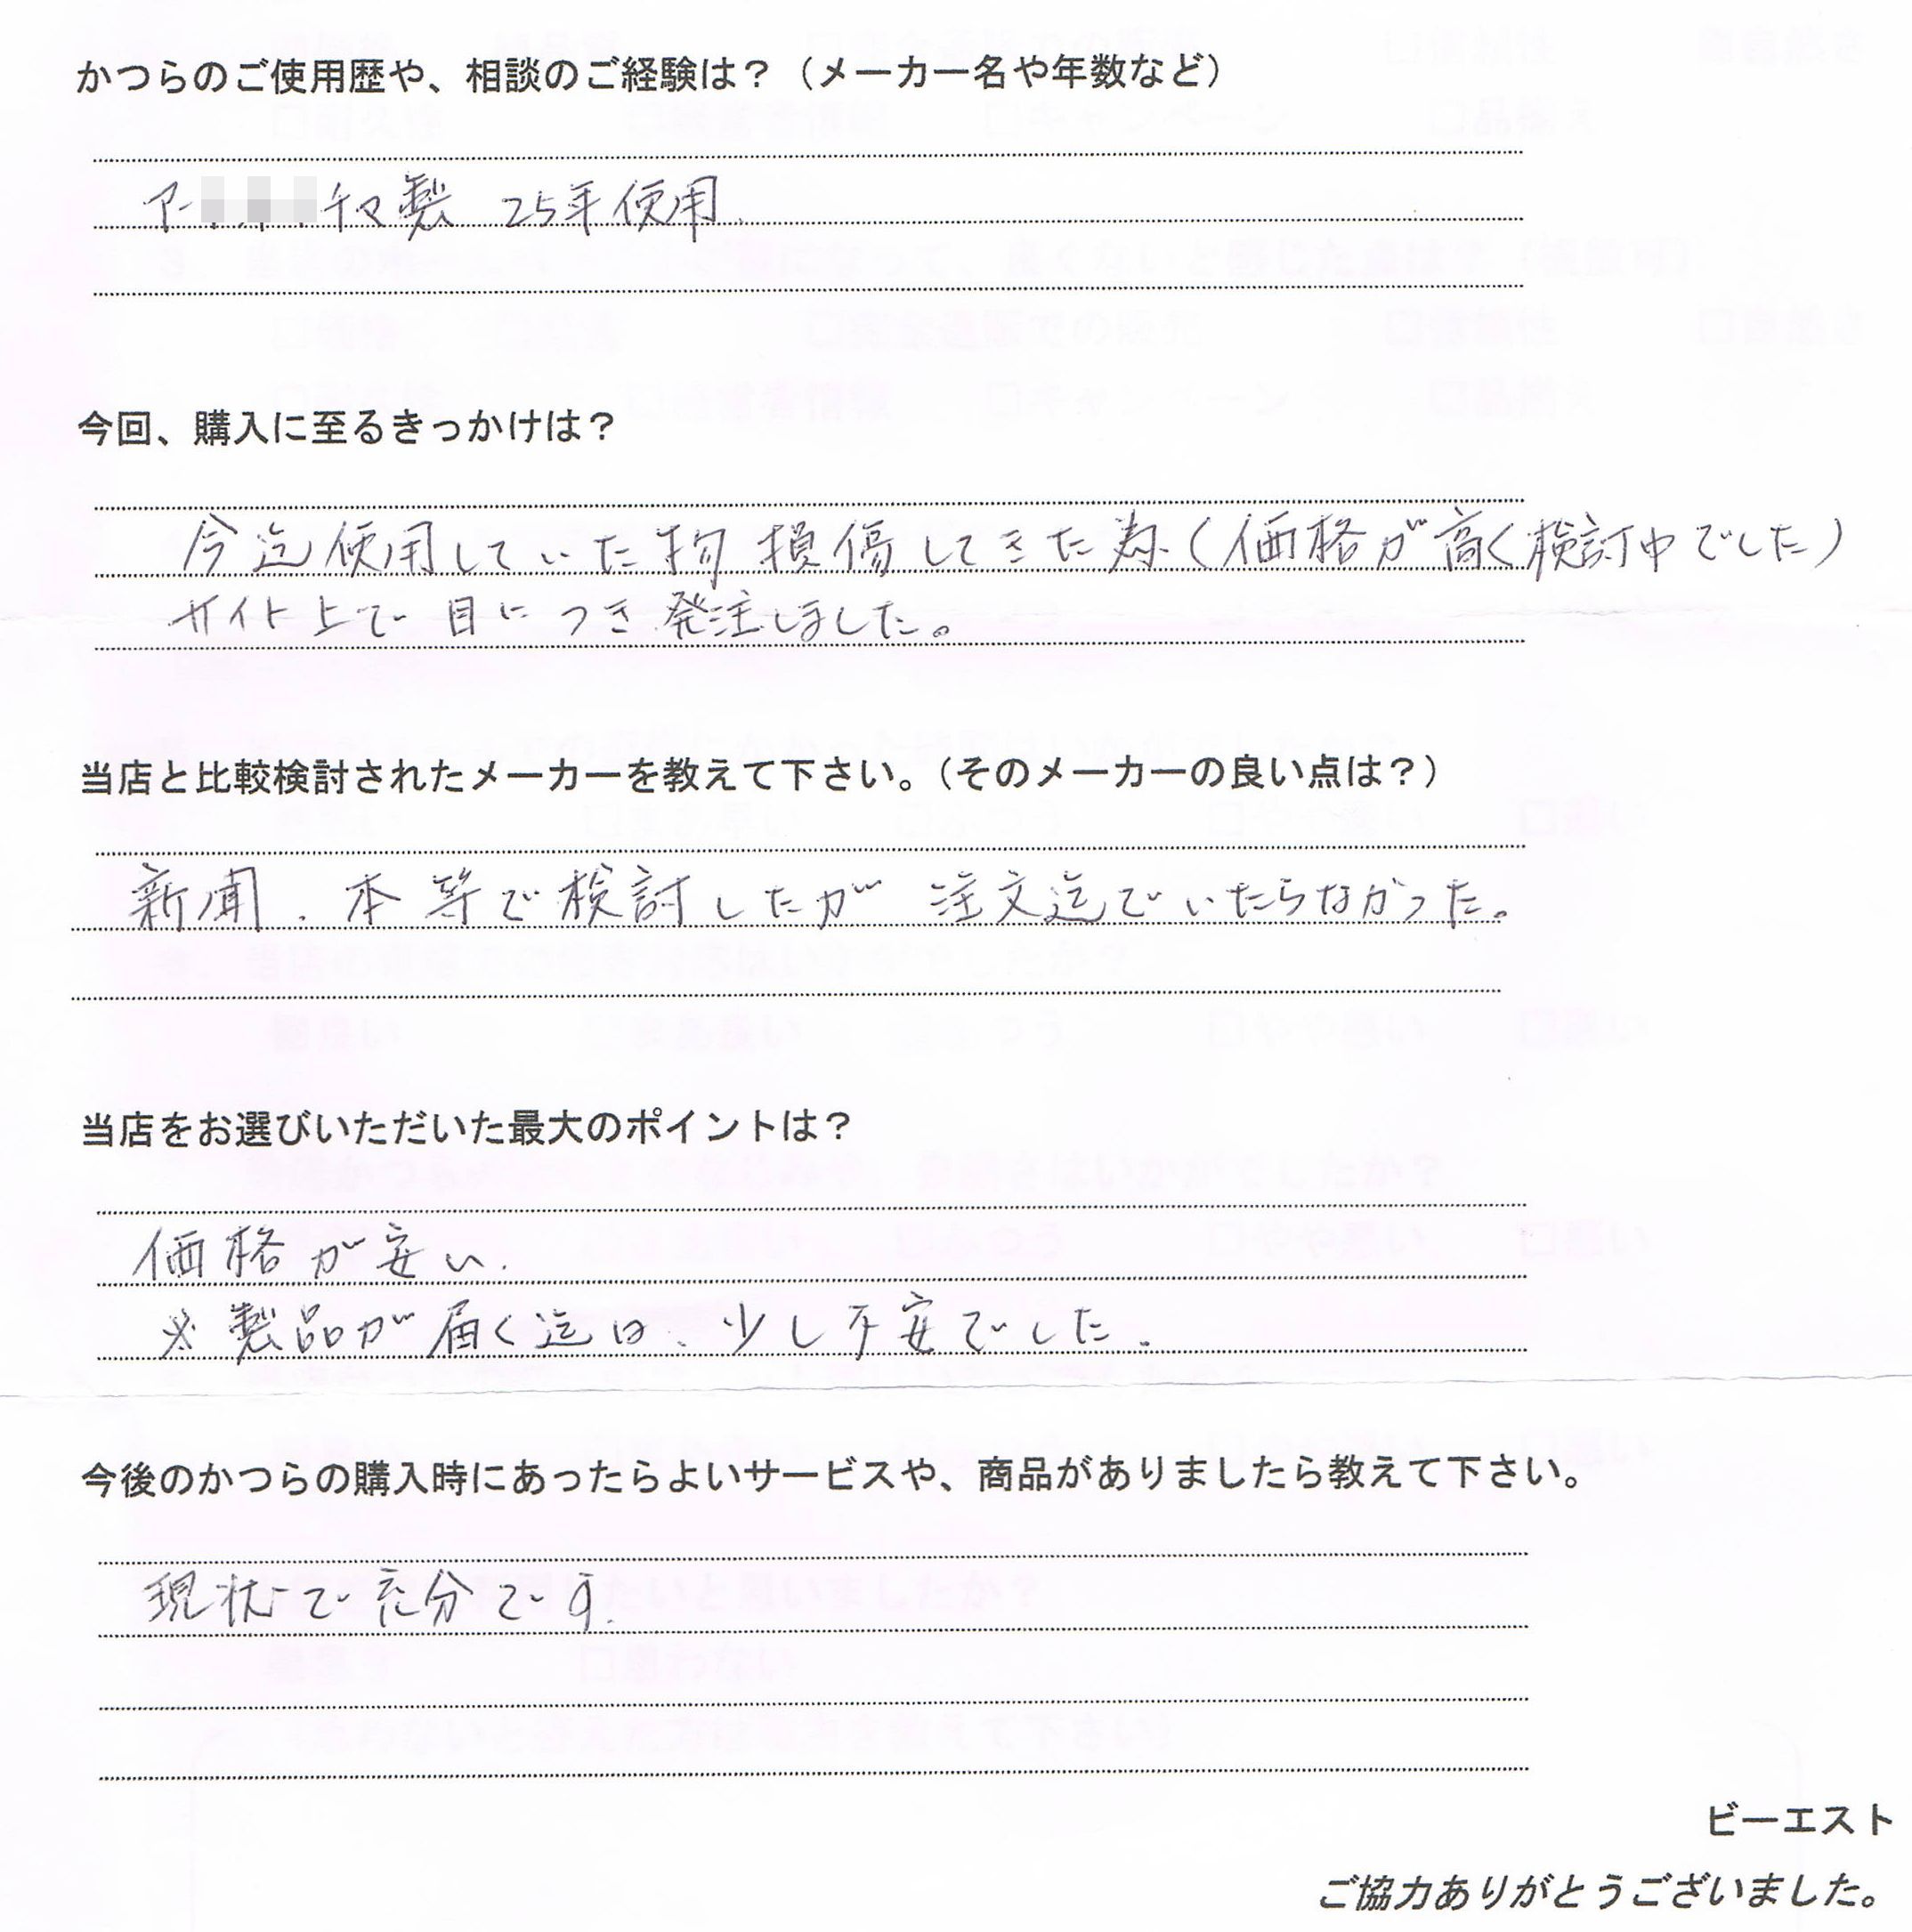 かつらのご使用歴や、相談のご経験は？（メーカー名や年数など）
ア チャ製 25年使用.
今回、購入に至るきっかけは？
今迄使用していた物損傷してきた為（価格が高く検討中でした）
サイト上で目につき発注しました。
当店と比較検討されたメーカーを教えて下さい。（そのメーカーの良い点は？）
新聞、本等で検討したが注文迄でいたらなかった。
当店をお選びいただいた最大のポイントは？
価格が安い.
※製品が届く迄は、少し不安でした.
今後のかつらの購入時にあったらよいサービスや、商品がありましたら教えて下さい。
現状で充分です.
ビーエスト
ご協力ありがとうございました。